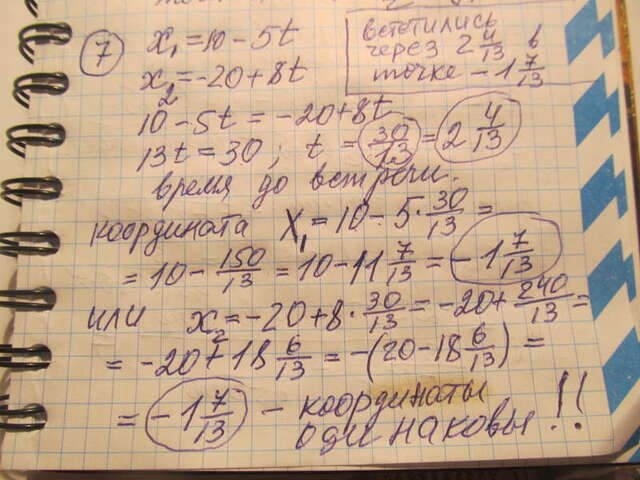 встетились
через 2 4/13 в
точке -1 7/13
7
x₁ = 10 - 5t
x₂ = -20 + 8t
10 - 5t = -20 + 8t
13t = 30, t = 30/13 = 2 4/13
время до встречи.
координата X₁ = 10 - 5 · 30/13 =
= 10 - 150/13 = 10 - 11 7/13 = -1 7/13
или x₂ = -20 + 8 · 30/13 = -20 + 240/13 =
= -20 + 18 6/13 = -(20 - 18 6/13) =
= -1 7/13 - координаты
одинаковы!!